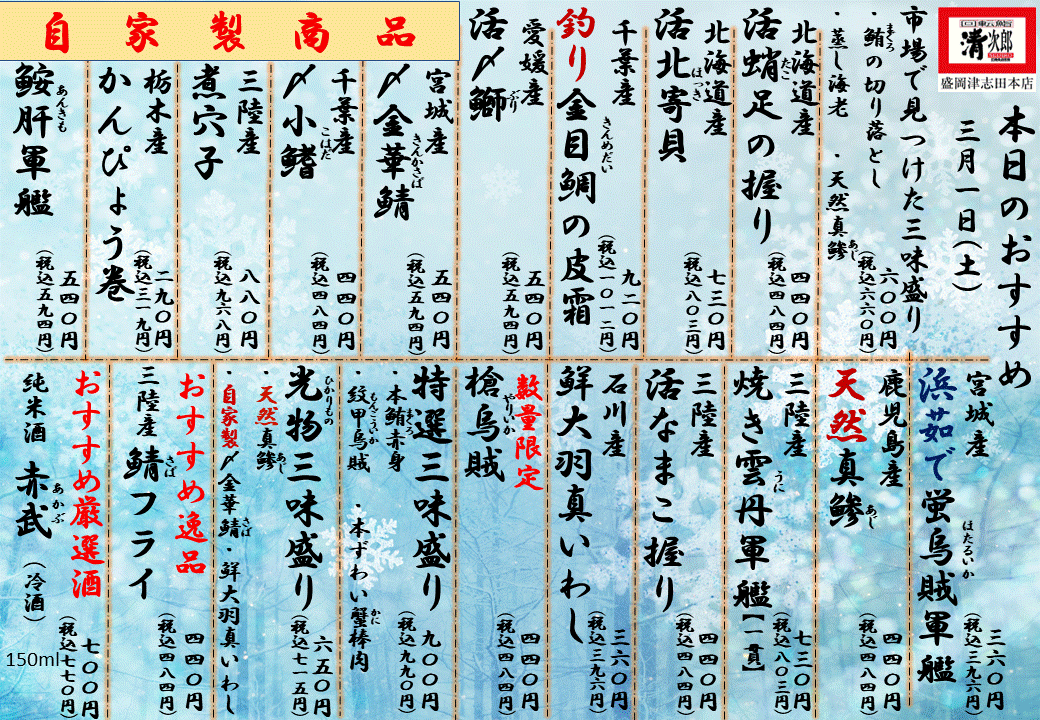 回転鮨
清次郎
SEIJIRO
盛岡津志田本店
本日のおすすめ
三月一日(土)
市場で見つけた三味盛り
・鮪の切り落とし
まぐろ
・蒸し海老 ・天然真鯵
あじ
六〇〇円
(税込六六〇円)
北海道産
活蛸足の握り
たこ
四四〇円
(税込四八四円)
北海道産
活北寄貝
ほっき
七三〇円
(税込八〇三円)
千葉産
釣り金目鯛の皮霜
きんめだい
九二〇円
(税込一〇一二円)
愛媛産
活〆鰤
ぶり
五四〇円
(税込五九四円)
自家製商品
宮城産
〆金華鯖
きんかさば
五四〇円
(税込五九四円)
千葉産
〆小鰭
こはだ
四四〇円
(税込四八四円)
三陸産
煮穴子
八八〇円
(税込九六八円)
栃木産
かんぴょう巻
二九〇円
(税込三一九円)
鮟肝軍艦
あんきも
五四〇円
(税込五九四円)
宮城産
浜茹で蛍烏賊軍艦
ほたるいか
三六〇円
(税込三九六円)
鹿児島産
天然真鯵
あじ
四四〇円
(税込四八四円)
三陸産
焼き雲丹軍艦【一貫】
うに
七三〇円
(税込八〇三円)
三陸産
活なまこ握り
四四〇円
(税込四八四円)
石川産
鮮大羽真いわし
三六〇円
(税込三九六円)
数量限定
槍烏賊
やりいか
四四〇円
(税込四八四円)
特選三味盛り
・本鮪赤身
まぐろ
・紋甲烏賊 ・本ずわい蟹棒肉
もんごういか
かに
九〇〇円
(税込九九〇円)
光物三味盛り
ひかりもの
・天然真鯵
あじ
・自家製〆金華鯖・鮮大羽真いわし
さば
六五〇円
(税込七一五円)
おすすめ逸品
三陸産 鯖フライ
さば
四四〇円
(税込四八四円)
おすすめ厳選酒
純米酒 赤武 (冷酒)
あかぶ
150ml
七〇〇円
(税込七七〇円)